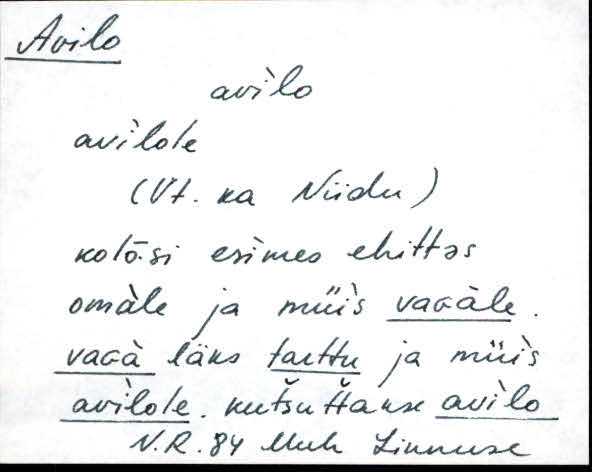 Avilo
avìlo
avìlole
(Vt. ka Niidu)
esìmes ehittəs
omàle ja müìs vaGàle.
vaGà läks tarttu ja müìs
avìlole. kutšuttakse avìlo
N.R. 84 Muh Linnuse